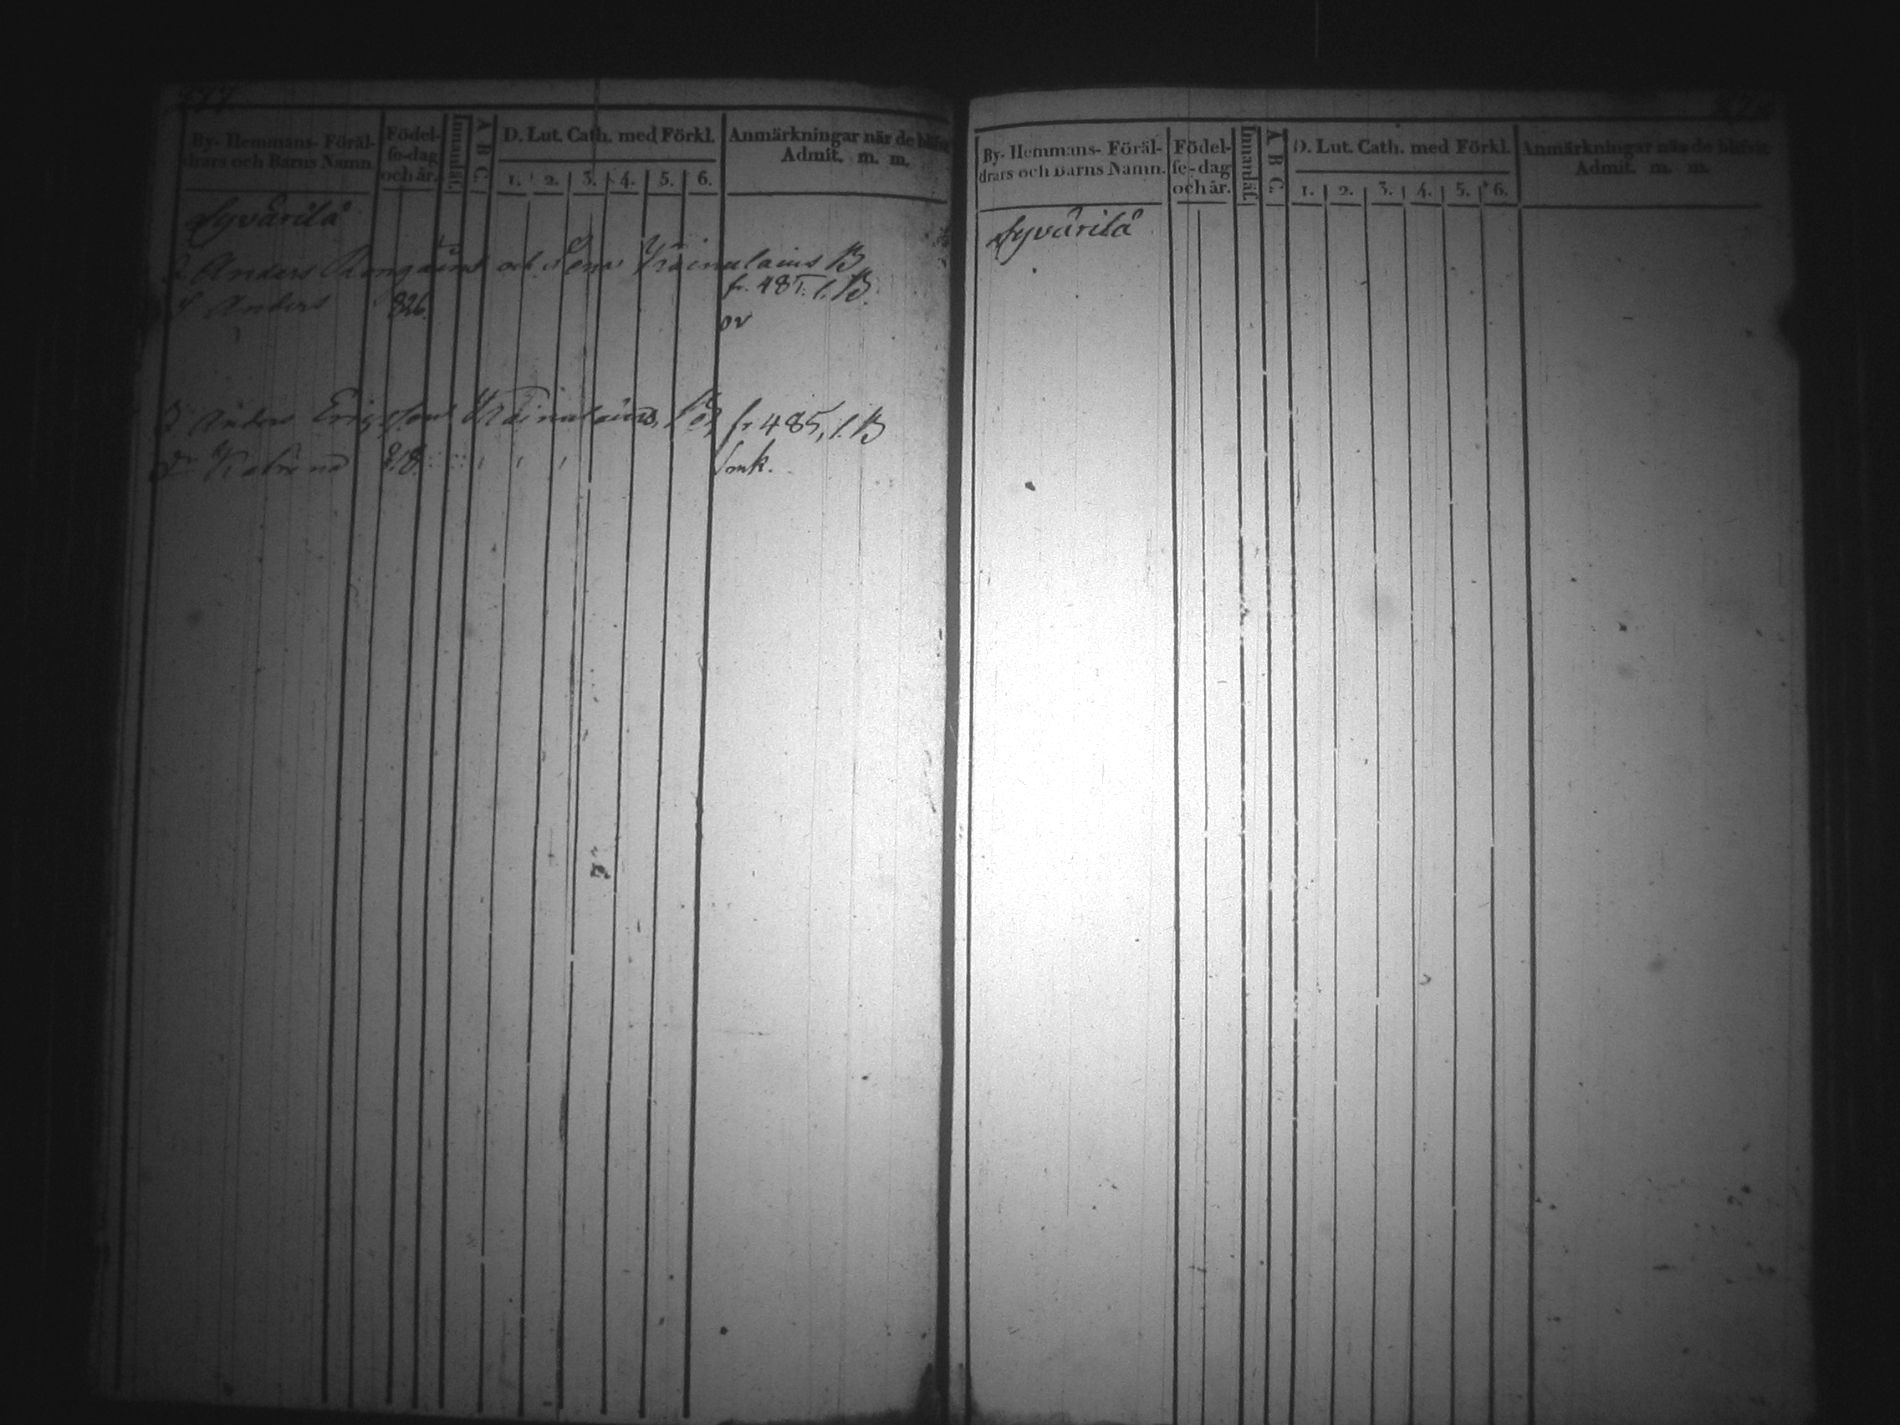 277
By- Hemmans- Föräl-
drars och Barns Namn.
Födel-
se-dag
och år.
Innanläs.
A B C.
D. Lut. Cath. med Förkl.
1. 2. 3. 4. 5. 6.
Anmärkningar när de blifvit
Admit. m. m.
Syvärilä
Anders och Kainulains B
fr. 485. l. B
Anders 826.
or
Anders Ericsson Kainulains, fr. 485, l. B
Katrina 28. Sonk.
By- Hemmans- Föräl-
drars och Barns Namn.
Födel-
se-dag
och år.
Innanläs.
A B C.
D. Lut. Cath. med Förkl.
1. 2. 3. 4. 5. 6.
Anmärkningar när de blifvit
Admit. m. m.
Syvärilä